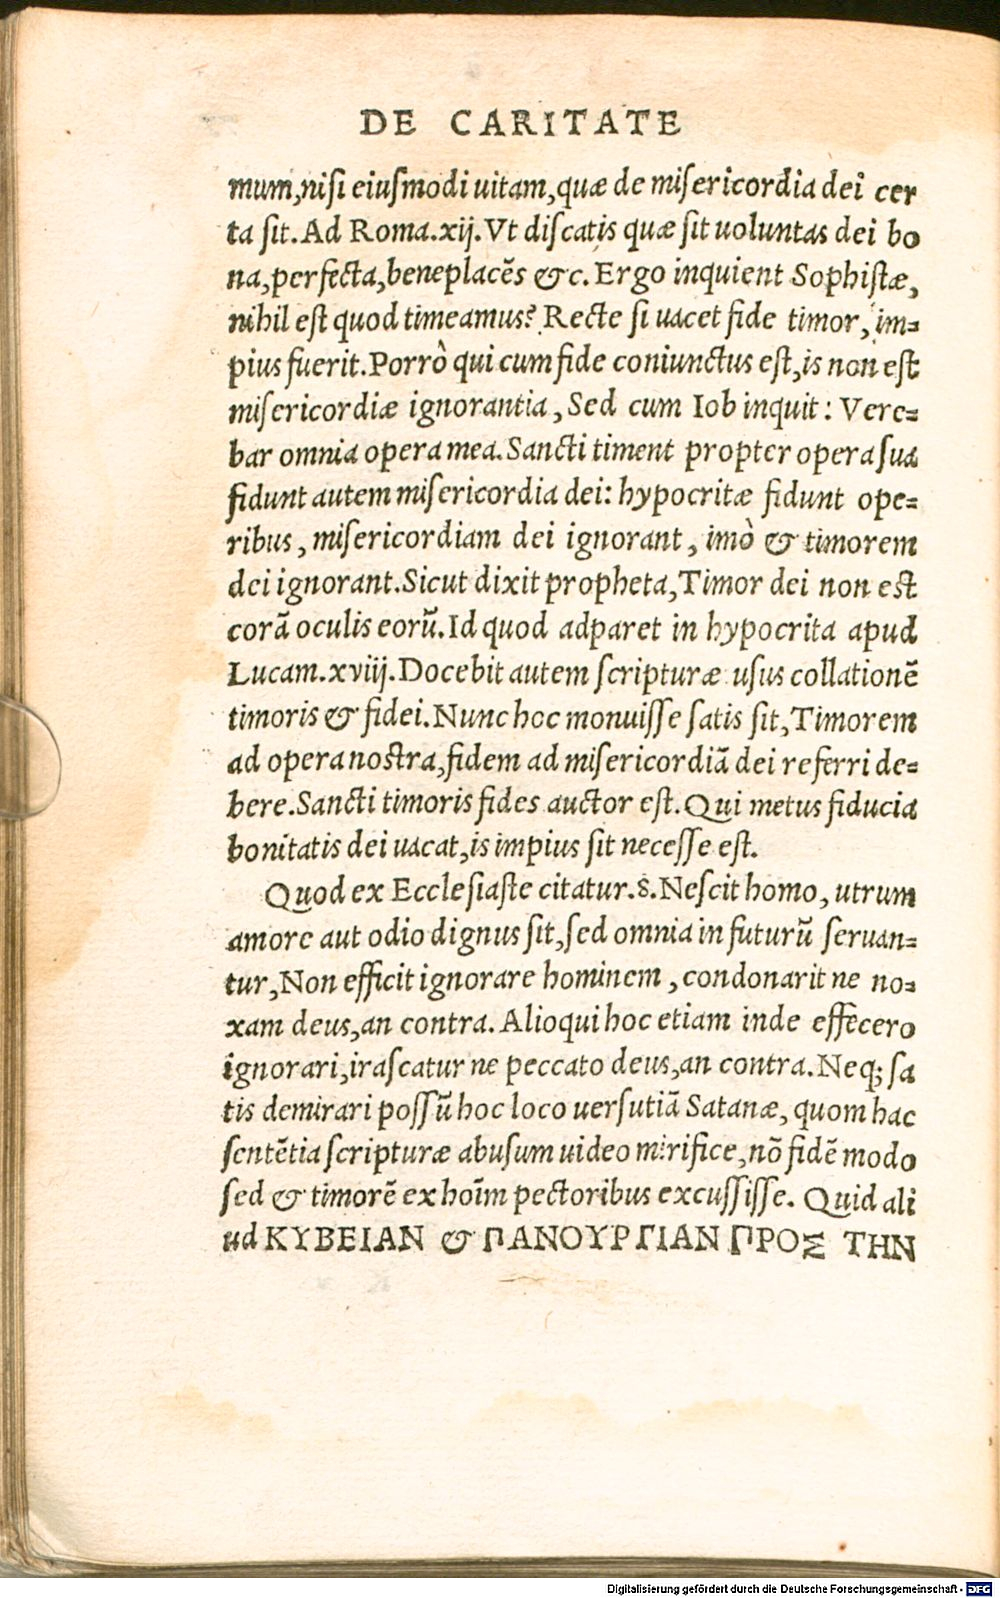 DE CARITATE
mum,nisi eiusmodi uitam,quæ de misericordia dei cer
ta sit.Ad Roma.xij.Vt discatis quæ sit uoluntas dei bo
na,perfecta,beneplacẽs & c.Ergo inquient Sophistæ,
nihil est quod timeamus? Recte si uacet fide timor, im-
pius fuerit.Porrò qui cum fide coniunctus est,is non est
misericordiæ ignorantia, Sed cum Iob inquit: Vere-
bar omnia opera mea.Sancti timent propter opera sua
fidunt autem misericordia dei: hypocritæ fidunt ope-
ribus, misericordiam dei ignorant, imò & timorem
dei ignorant.Sicut dixit propheta,Timor dei non est
corã oculis eorũ.Id quod adparet in hypocrita apud
Lucam.xviij.Docebit autem scripturæ usus collationẽ
timoris & fidei.Nunc hoc monuisse satis sit,Timorem
ad opera nostra,fidem ad misericordiã dei referri de-
bere.Sancti timoris fides auctor est.Qui metus fiducia
bonitatis dei uacat,is impius sit necesse est.
Quod ex Ecclesiaste citatur.s̃.Nescit homo, utrum
amore aut odio dignus sit,sed omnia in futurũ seruan-
tur,Non efficit ignorare hominem, condonarit ne no-
xam deus,an contra.Alioqui hoc etiam inde effecero
ignorari,irascatur ne peccato deus,an contra.Neq; sa
tis demirari possũ hoc loco uersutiã Satanæ, quom hac
sentẽtia scripturæ abusum uideo mirifice,nõ fidẽ modo
sed & timorẽ ex hoĩm pectoribus excussisse. Quid ali
ud ΚΥΒΕΙΑΝ & ΠΑΝΟΥΡΓΙΑΝ ΠΡΟΣ ΤΗΝ
Digitalisierung gefördert durch die Deutsche Forschungsgemeinschaft - DFG